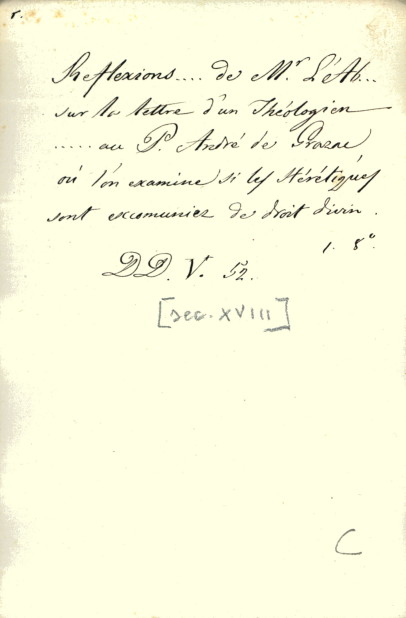 r.
Reflexions.... de Mr. L'éAb...
sur la lettre d'un Théologien
..... au P. André de Grazac
où l'on examine si les Hérétiques
sont excomuniez de droit divin.
1. 8°.
DD. V. 52.
[sec. XVIII]
C